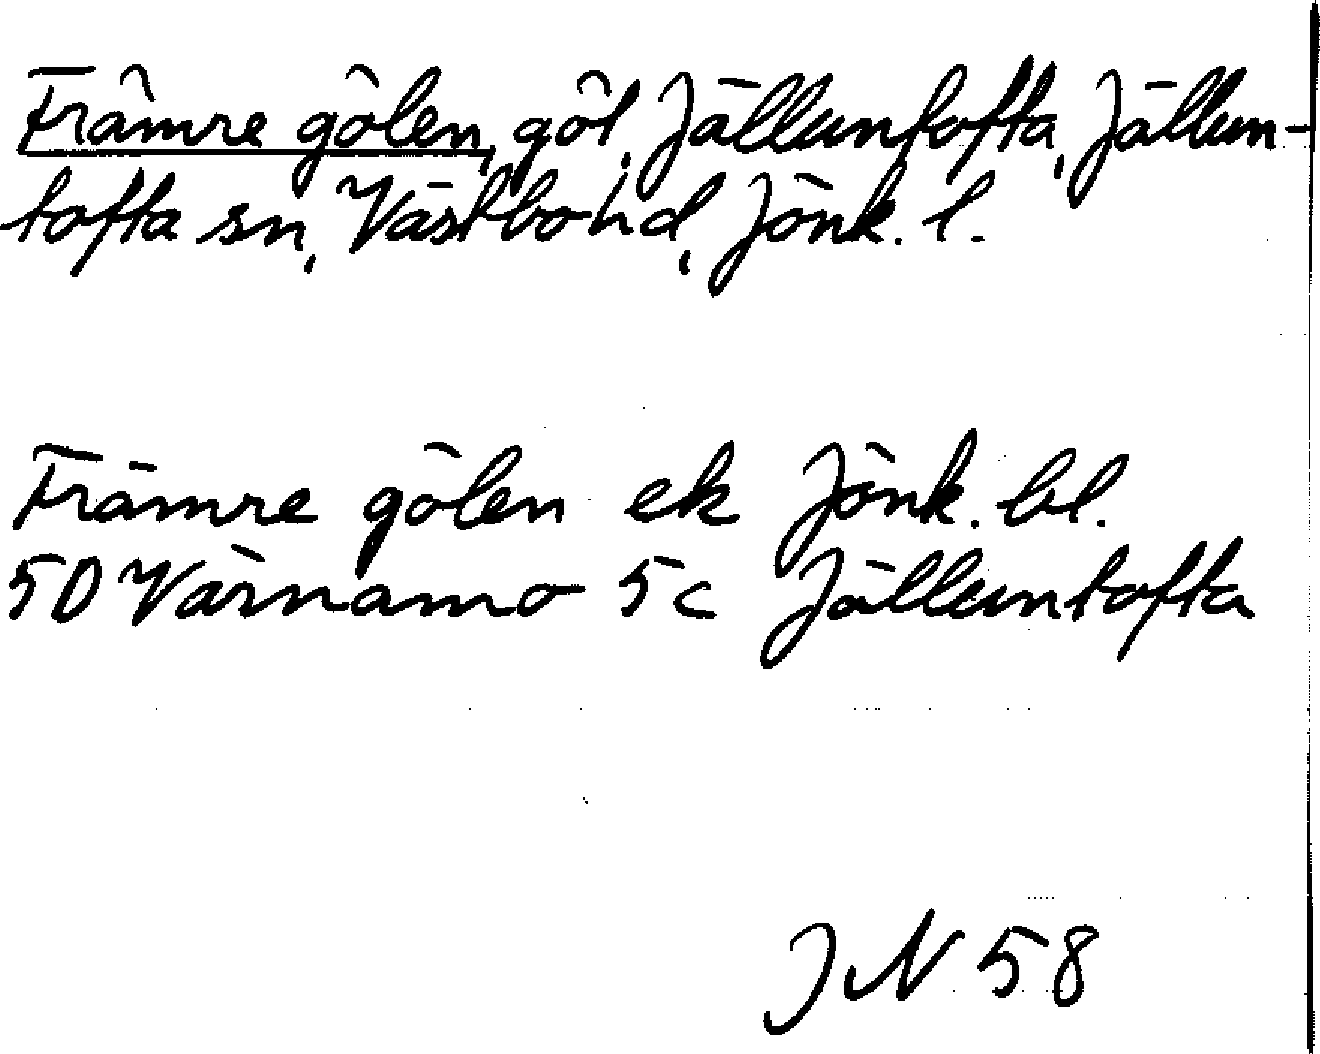 Främre gölen, göl, Jälluntofta, Jällun-
tofta sn, Västbo hd, Jönk. l.
Främre gölen ek Jönk. bl.
5D Värnamo 5c Jälluntofta
JN 58